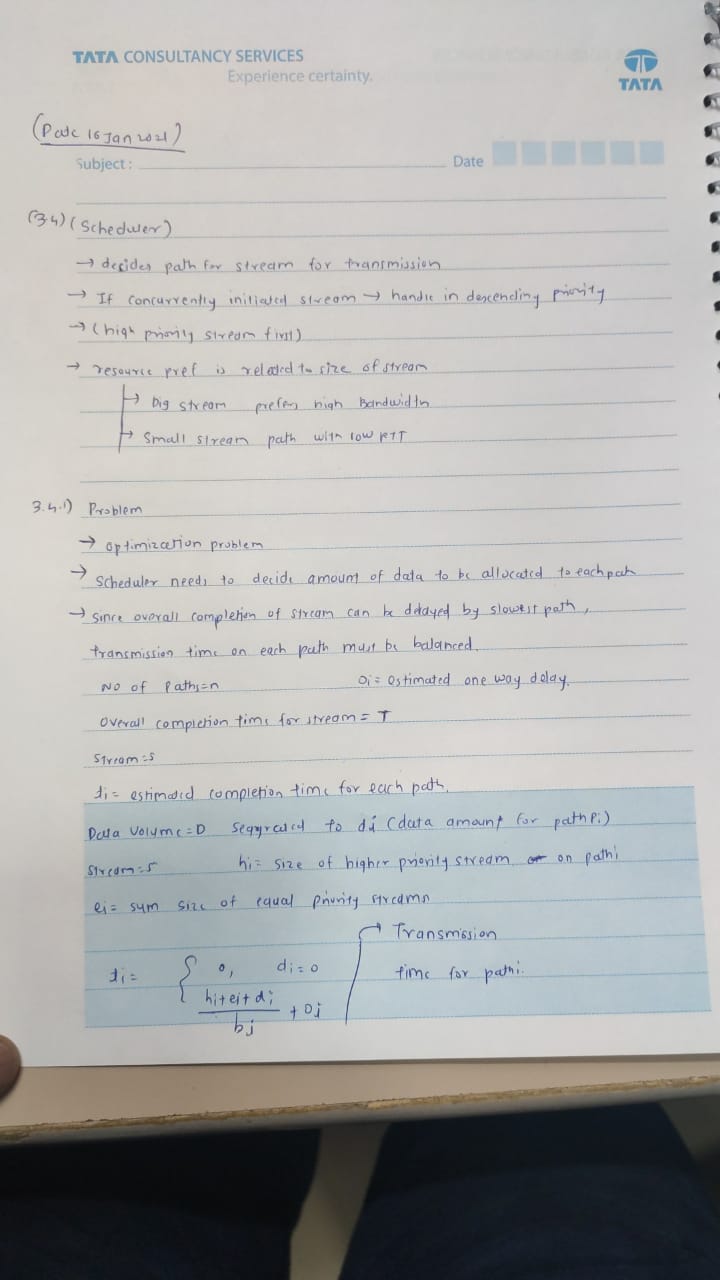 TATA CONSULTANCY SERVICES
Experience certainty.
TATA
(Date 16 Jan 2021)
Subject :
Date
(3.4) (Scheduler)
→ decides path for stream for transmission
→ If concurrently initiated stream → handle in descending priority
→ (high priority stream first)
→ resource pref is related to size of stream
→ Big stream prefers high Bandwidth
→ Small stream path with low RTT
3.4.1) Problem
→ optimization problem
→ Scheduler needs to decide amount of data to be allocated to each path
→ since overall completion of stream can be delayed by slowest path,
transmission time on each path must be balanced.
No of Paths=n Oi = estimated one way delay.
Overall completion time for stream = T
Stream=s
ti = estimated completion time for each path.
Data Volume = D Seggregated to di (data amount for path Pi)
Stream=s hi = size of higher priority stream on path i
ei = sum size of equal priority streams
Transmission
time for path i.
ti = { 0, di = 0
hi + ei + di
bj + Oj